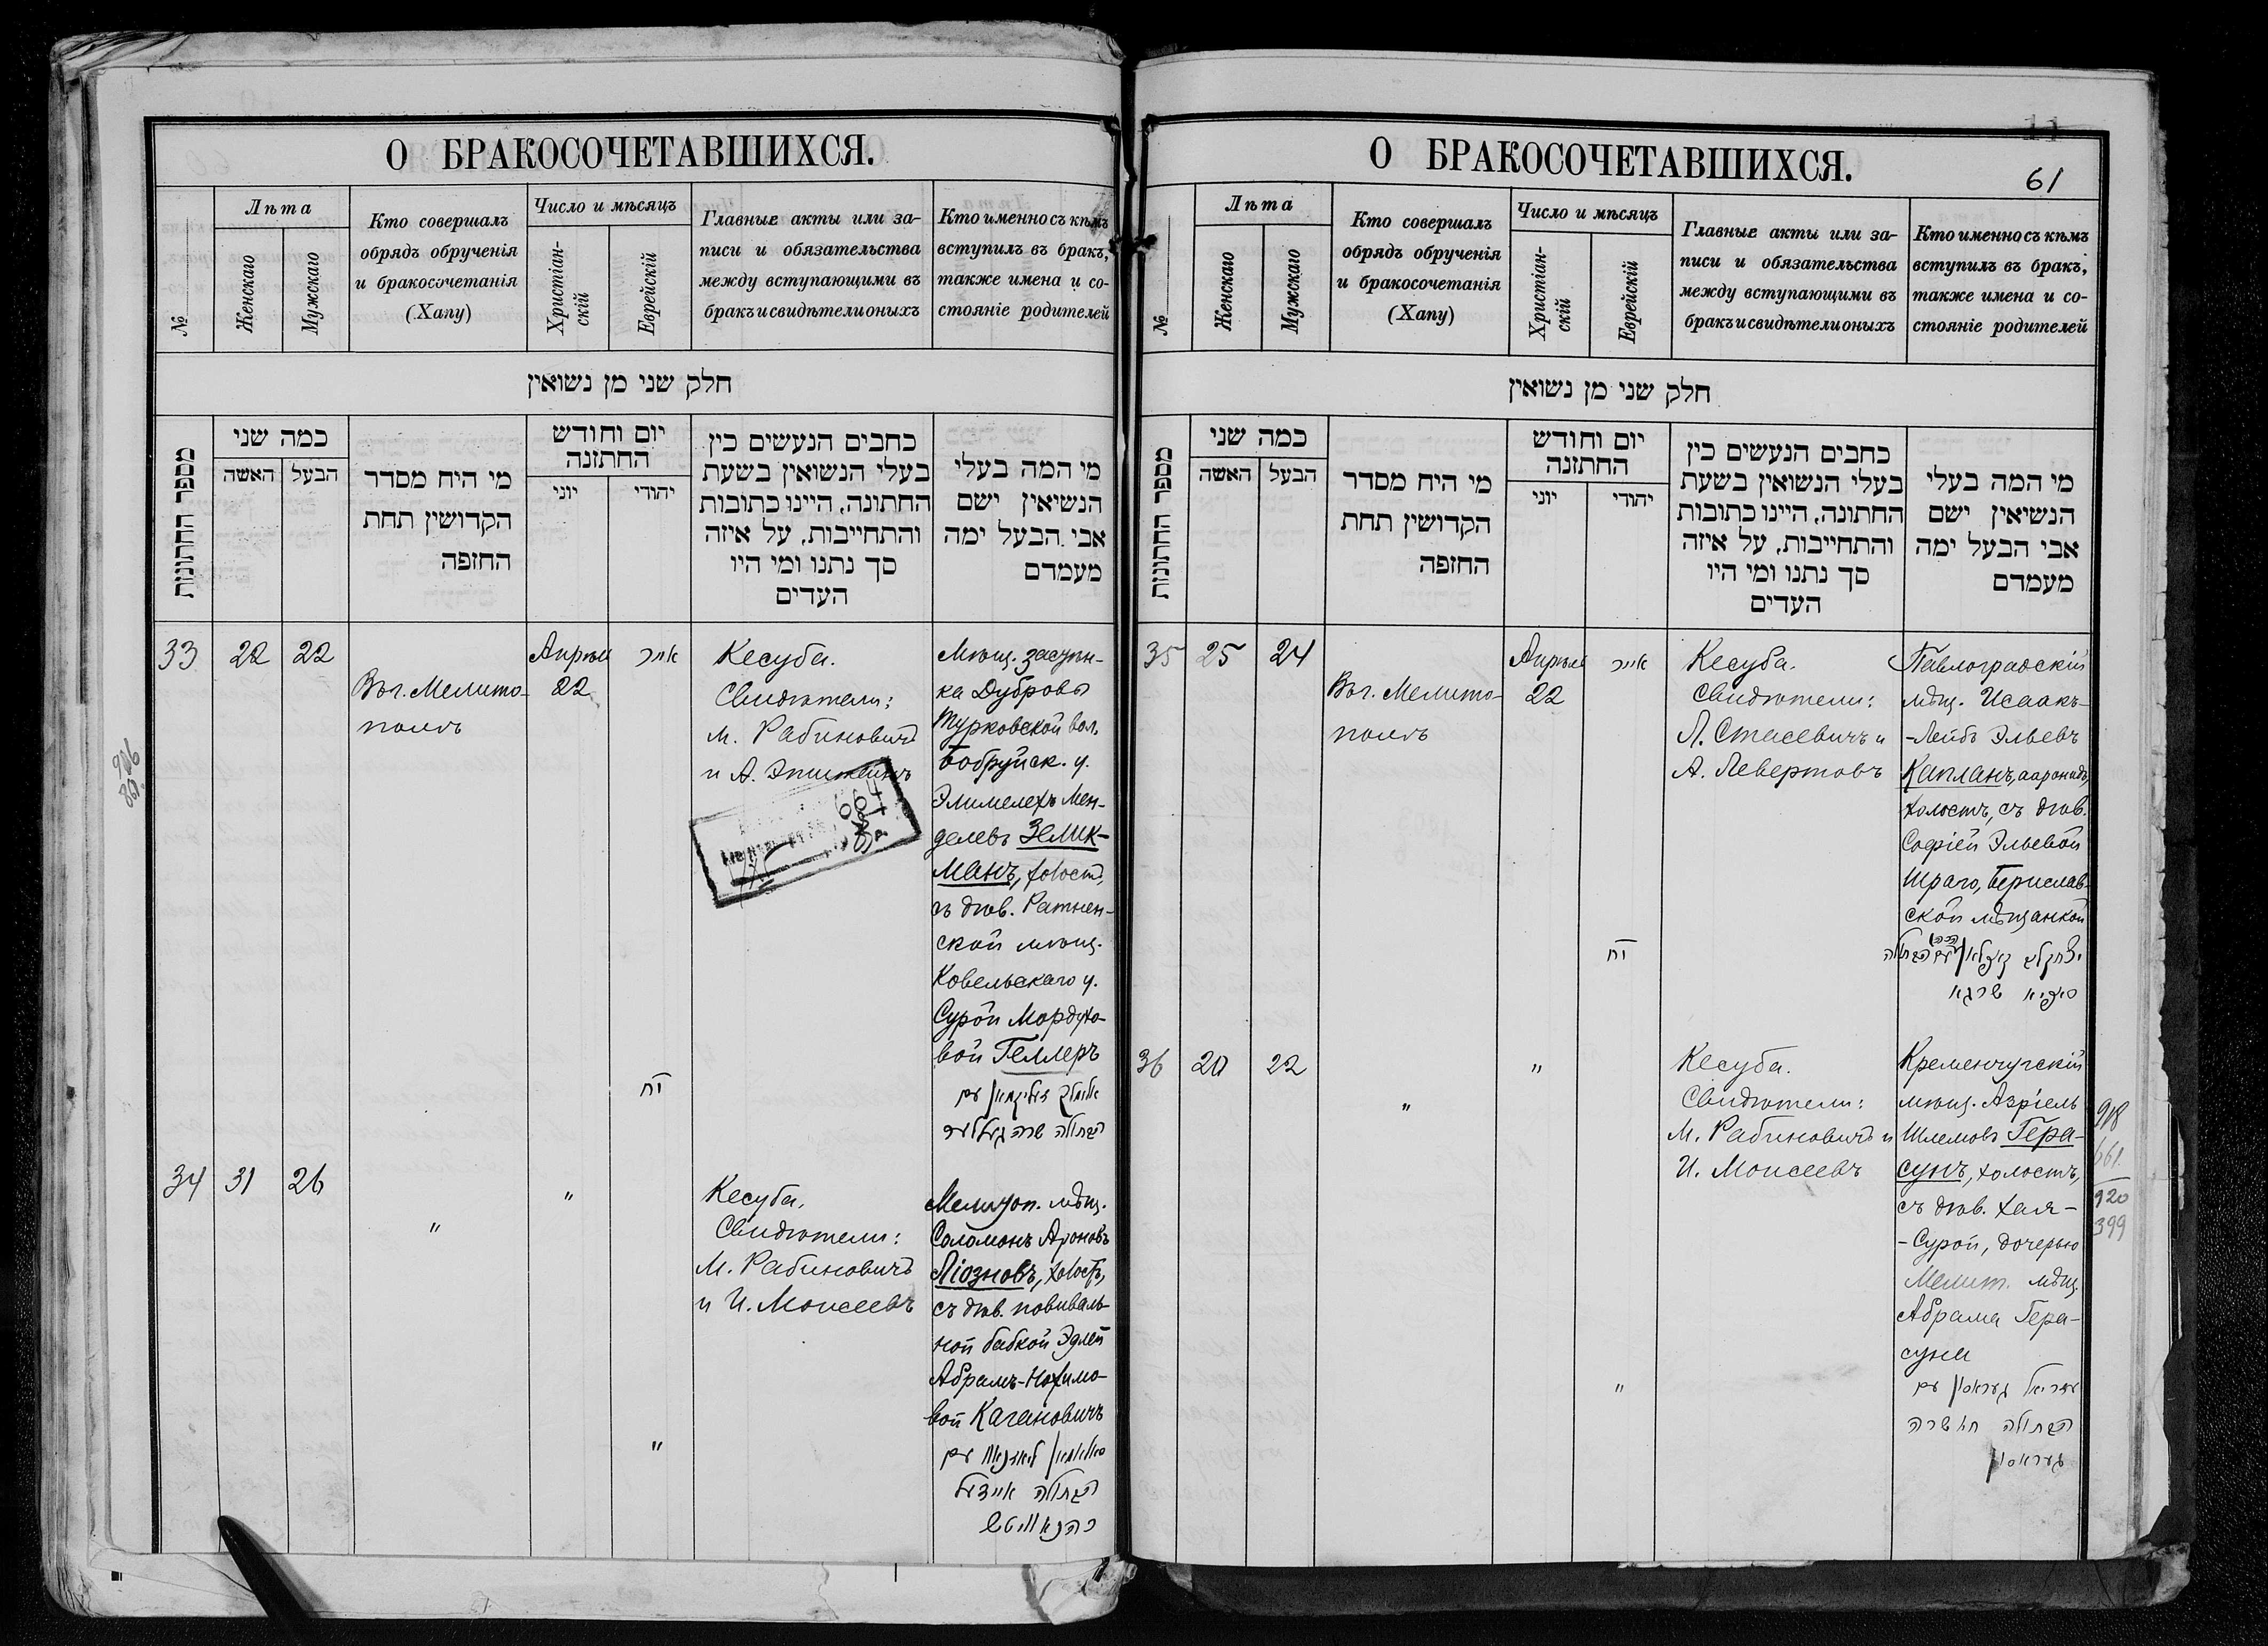 О БРАКОСОЧЕТАВШИХСЯ.
№
Лѣта
Женскаго
Мужскаго
Кто совершалъ
обрядъ обрученія
и бракосочетанія
(Хапу)
Число и мѣсяцъ
Христіан-
скій
Еврейскій
Главные акты или за-
писи и обязательства
между вступающими въ
бракъ и свидѣтели оныхъ
Кто именно съ кѣмъ
вступилъ въ бракъ,
также имена и со-
стояніе родителей
חלק שני מן נשואין
מספר החתונות
כמה שני
האשה
הבעל
מי היח מסדר
הקדושין תחת
החזפה
יום וחודש
החתזנה
יוני
יהודי
כחבים הנעשים כין
בעלי הנשואין בשעת
החתונה, היינו כתובות
והתחייבות, על איזה
סך נתנו ומי היו
העדים
מי המה בעלי
הנשיאין ישם
אבי הבעל ימה
מעמדם
33
22
22
Въ г. Мелито-
полѣ
Апрѣль
22
אייר
Кесуба.
Свидѣтели:
М. Рабиновичъ
и А.
Мѣщ. застѣн-
ка Дубровы
Турковской вол.
Бобруйск. у.
Элимелехъ Мен-
делевъ Зелик-
манъ, холост,
съ дѣв. Ратнен-
ской мѣщ.
Ковельскаго у.
Сурой Мордухо-
вой Геллеръ
ח
אלימלך זעליקמאן עם
הבתולה שרה געללער
34
31
26
"
"
Кесуба.
Свидѣтели:
М. Рабиновичъ
и И. Моисеевъ
Мелитоп. мѣщ.
Соломонъ Ароновъ
Ліозновъ, холостъ,
съ дѣв. повиваль-
ной бабкой Эдлей
Абрамъ-Нохимо-
вой Кагановичъ
"
עם
הבתולה איידעל
כהנאוויטש
906
861
О БРАКОСОЧЕТАВШИХСЯ.
11
61
№
Лѣта
Женскаго
Мужскаго
Кто совершалъ
обрядъ обрученія
и бракосочетанія
(Хапу)
Число и мѣсяцъ
Христіан-
скій
Еврейскій
Главные акты или за-
писи и обязательства
между вступающими въ
бракъ и свидѣтели оныхъ
Кто именно съ кѣмъ
вступилъ въ бракъ,
также имена и со-
стояніе родителей
חלק שני מן נשואין
מספר החתונות
כמה שני
האשה
הבעל
מי היח מסדר
הקדושין תחת
החזפה
יום וחודש
החתזנה
יוני
יהודי
כחבים הנעשים כין
בעלי הנשואין בשעת
החתונה, היינו כתובות
והתחייבות, על איזה
סך נתנו ומי היו
העדים
מי המה בעלי
הנשיאין ישם
אבי הבעל ימה
מעמדם
35
25
24
Въ г. Мелито-
полѣ
Апрѣль
22
אייר
Кесуба.
Свидѣтели:
Л. Стасевичъ и
А. Левертовъ
Павлоградскій
мѣщ. Исаакъ-
-Лейбъ Эльевъ
Капланъ, ааронидъ,
холостъ, съ дѣв.
Софіей Эльевой
Шраго, Берислав-
ской мѣщанкой
ח
קאפלאן (הכהן) עם הבתולה
סופיא שרגא
36
20
22
"
"
Кесуба.
Свидѣтели:
М. Рабиновичъ и
И. Моисеевъ
Кременчугскій
мѣщ. Азріель
Шлемовъ Гера-
сунъ, холостъ,
съ дѣв. Хая-
-Сурой, дочерью
Мелит. мѣщ.
Абрама Гера-
суна
"
עזריאל געראסון עם
הבתולה חיה שרה
געראסון
918
661
920
399